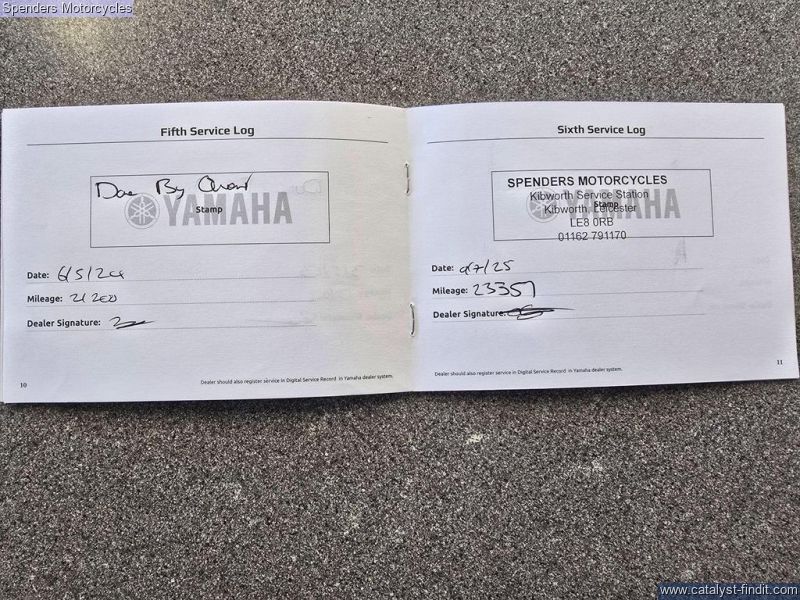 Spenders Motorcycles
Fifth Service Log
Done By Owner
YAMAHA
Stamp
Date: 6/5/24
Mileage: 21200
Dealer Signature:
Dealer should also register service in Digital Service Record in Yamaha dealer system.
10
Sixth Service Log
SPENDERS MOTORCYCLES
Kibworth Service Station
YAMAHA
Stamp
Kibworth, Leicester
LE8 0RB
01162 791170
Date: 9/7/25
Mileage: 23357
Dealer Signature:
Dealer should also register service in Digital Service Record in Yamaha dealer system.
11
www.catalyst-findit.com